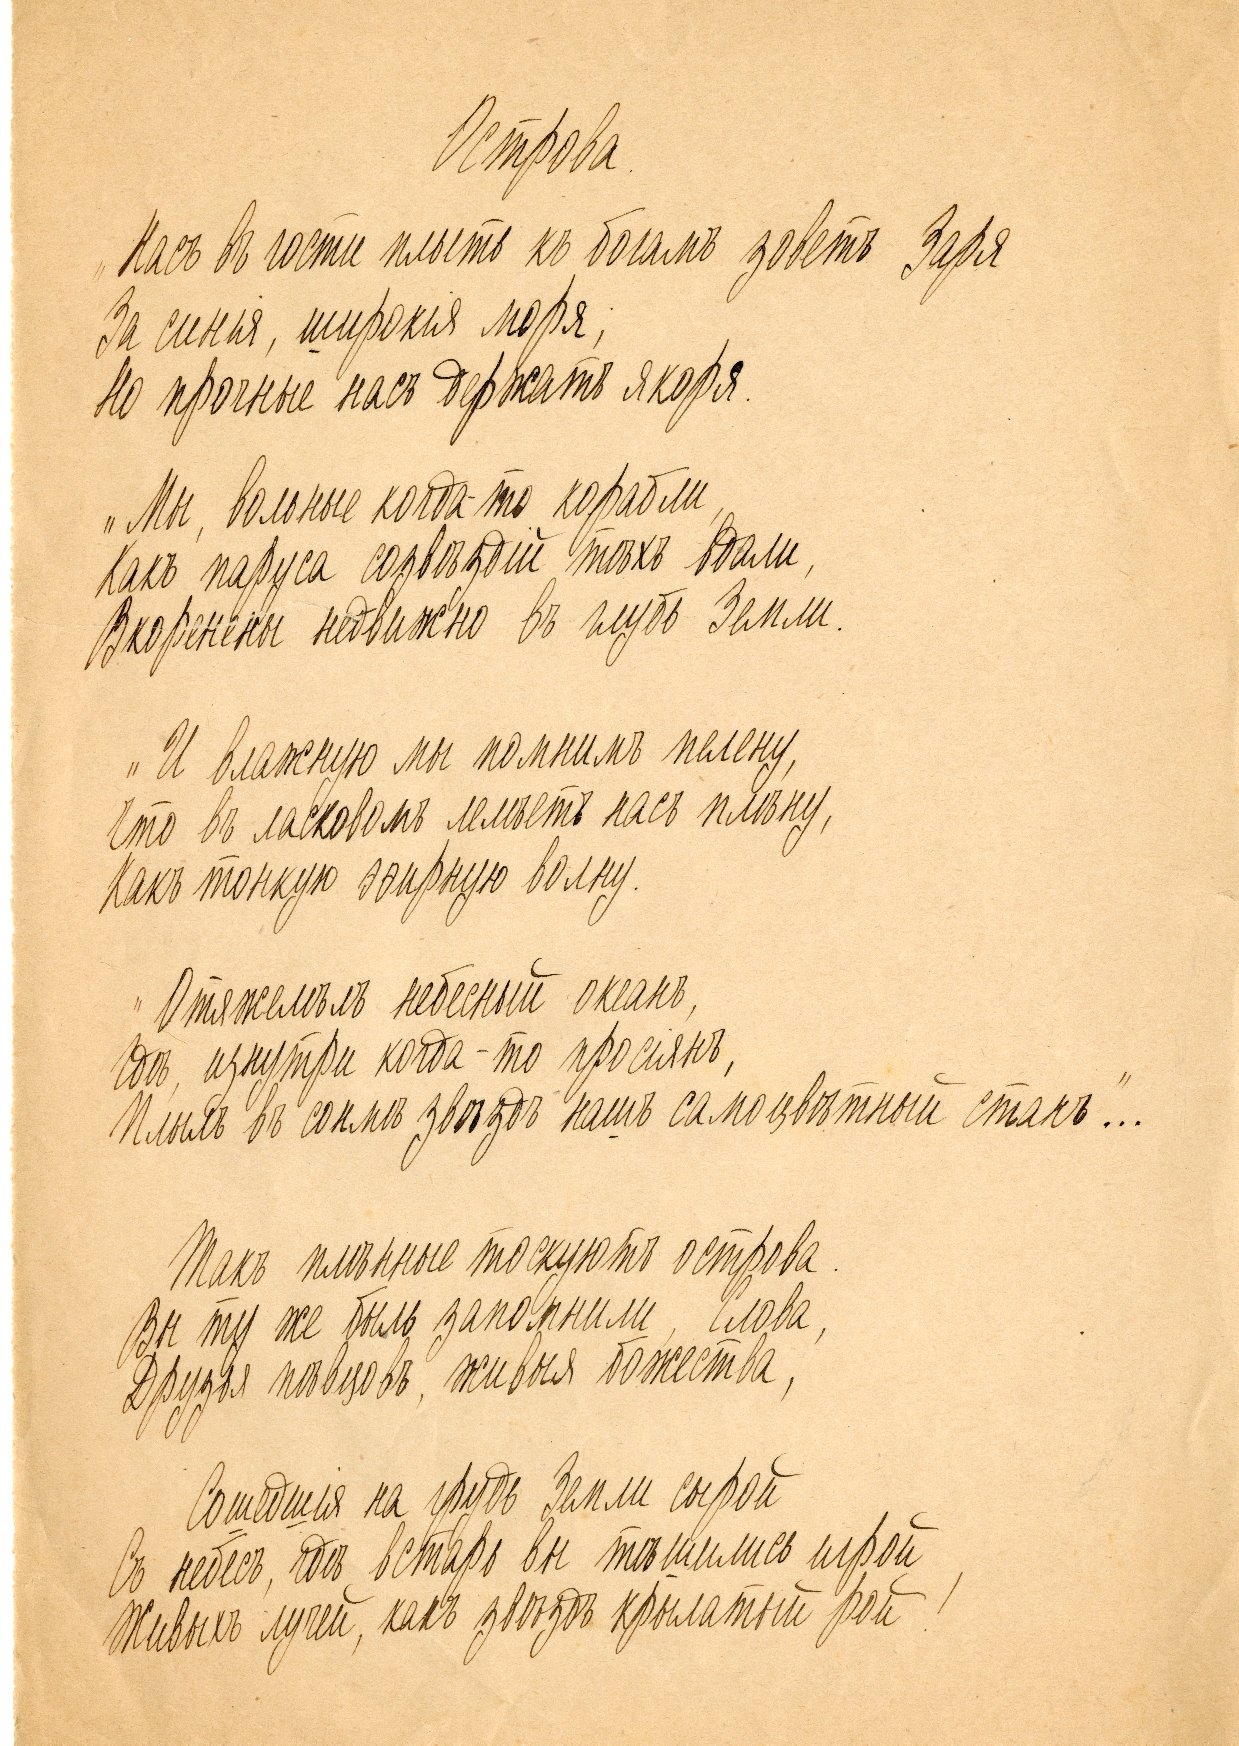 Острова.
„Насъ въ гости плыть къ богамъ зоветъ Заря
За синія, широкія моря;
Но прочные насъ держатъ якоря.
„Мы, вольные когда-то корабли,
Какъ паруса созвѣздій тѣхъ вдали,
Вкоренены недвижно въ глубь Земли.
„И влажную мы помнимъ пелену,
Что въ ласковомъ лелѣетъ насъ плѣну,
Какъ тонкую эѳирную волну.
„Отяжелѣлъ небесный океанъ,
Гдѣ, изнутри когда-то просіянъ,
Плылъ въ сонмѣ звѣздъ нашъ самоцвѣтный станъ"...
Такъ плѣнные тоскуютъ острова.
Вы ту же быль запомнили, Слова,
Друзья пѣвцовъ, живыя божества,
Сошедшія на грудь Земли сырой
Съ небесъ, гдѣ встарь вы тѣшились игрой
Живыхъ лучей, какъ звѣздъ крылатый рой!